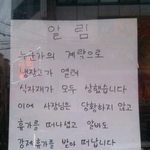 알림
누군가의 계략으로
냉장고가 열려
식자재가 모두 상했습니다
이에 사장님은 당황하지 않고
휴가를 떠나셨고 알바도
강제휴가를 받아 떠납니다